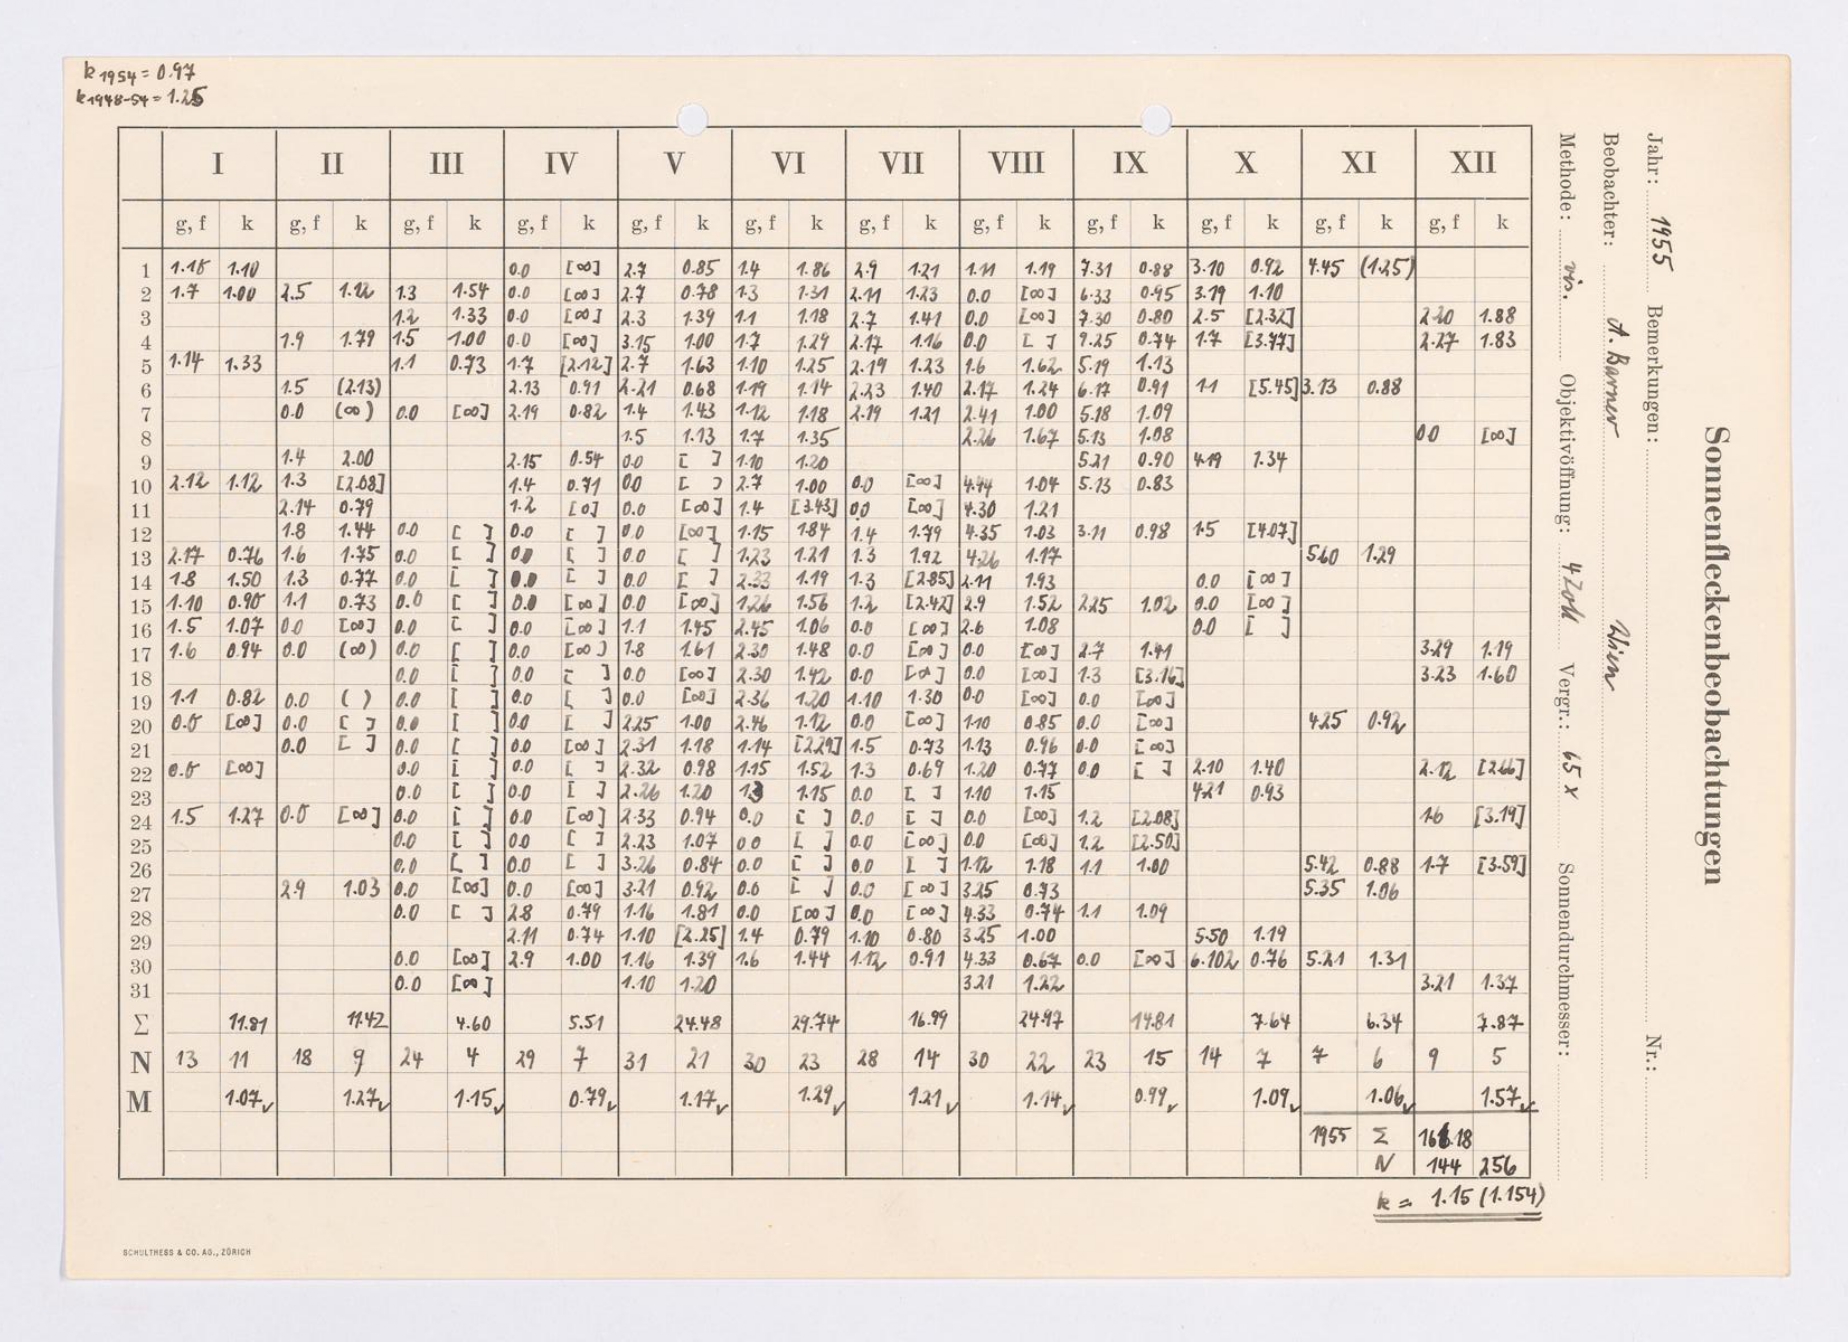 k 1954 = 0.97
k 1948-54 = 1.25
I II III IV V VI VII VIII IX X XI XII
g, f k g, f k g, f k g, f k g, f k g, f k g, f k g, f k g, f k g, f k g, f k g, f k
1 1.18 1.10 0.0 [∞] 2.7 0.85 1.4 1.86 2.9 1.21 1.11 1.19 7.31 0.88 3.10 0.92 4.45 (1.25)
2 1.7 1.00 2.5 1.12 1.3 1.54 0.0 [∞] 2.7 0.78 1.3 1.31 2.11 1.23 0.0 [∞] 6.33 0.95 3.19 1.10
3 1.2 1.33 0.0 [∞] 2.3 1.39 1.1 1.18 2.7 1.41 0.0 [∞] 7.30 0.80 2.5 [2.32] 2.20 1.88
4 1.9 1.79 1.5 1.00 0.0 [∞] 3.15 1.00 1.7 1.29 2.17 1.16 0.0 [ ] 9.25 0.74 1.7 [3.77] 2.27 1.83
5 1.14 1.33 1.1 0.73 1.7 [2.12] 2.7 1.63 1.10 1.25 2.19 1.23 1.6 1.62 5.19 1.13
6 1.5 (2.13) 2.13 0.91 2.21 0.68 1.19 1.14 2.23 1.40 2.17 1.24 6.17 0.91 1.1 [5.45] 3.13 0.88
7 0.0 (∞) 0.0 [∞] 2.19 0.82 1.4 1.43 1.12 1.18 2.19 1.21 2.41 1.00 5.18 1.09
8 1.5 1.13 1.7 1.35 2.26 1.67 5.13 1.08 0.0 [∞]
9 1.4 2.00 2.15 0.54 0.0 [ ] 1.10 1.20 5.21 0.90 4.19 1.34
10 2.12 1.12 1.3 [2.08] 1.4 0.71 0.0 [ ] 2.7 1.00 0.0 [∞] 4.44 1.04 5.13 0.83
11 2.14 0.79 1.2 [0] 0.0 [∞] 1.4 [3.43] 0.0 [∞] 4.30 1.21
12 1.8 1.44 0.0 [ ] 0.0 [ ] 0.0 [∞] 1.15 1.84 1.4 1.79 4.35 1.03 3.11 0.98 1.5 [4.07]
13 2.17 0.76 1.6 1.75 0.0 [ ] 0.0 [ ] 0.0 [ ] 1.23 1.21 1.3 1.92 4.26 1.17 5.60 1.29
14 1.8 1.50 1.3 0.77 0.0 [ ] 0.0 [ ] 0.0 [ ] 2.33 1.19 1.3 [2.85] 2.11 1.93 0.0 [∞]
15 1.10 0.90 1.1 0.73 0.0 [ ] 0.0 [∞] 0.0 [∞] 1.26 1.56 1.2 [2.42] 2.9 1.52 2.25 1.02 0.0 [∞]
16 1.5 1.07 0.0 [∞] 0.0 [ ] 0.0 [∞] 1.1 1.45 2.45 1.06 0.0 [∞] 2.6 1.08 0.0 [ ]
17 1.6 0.94 0.0 (∞) 0.0 [ ] 0.0 [∞] 1.8 1.61 2.30 1.48 0.0 [∞] 0.0 [∞] 2.7 1.41 3.29 1.19
18 0.0 [ ] 0.0 [ ] 0.0 [∞] 2.30 1.42 0.0 [∞] 0.0 [∞] 1.3 [3.16] 3.23 1.60
19 1.1 0.82 0.0 ( ) 0.0 [ ] 0.0 [ ] 0.0 [∞] 2.36 1.20 1.10 1.30 0.0 [∞] 0.0 [∞]
20 0.0 [∞] 0.0 [ ] 0.0 [ ] 0.0 [ ] 2.25 1.00 2.46 1.12 0.0 [∞] 1.10 0.85 0.0 [∞] 4.25 0.92
21 0.0 [ ] 0.0 [ ] 0.0 [∞] 2.31 1.18 1.14 [2.29] 1.5 0.73 1.13 0.96 0.0 [∞]
22 0.0 [∞] 0.0 [ ] 0.0 [ ] 2.32 0.98 1.15 1.52 1.3 0.69 1.20 0.77 0.0 [ ] 2.10 1.40 2.12 [2.66]
23 0.0 [ ] 0.0 [ ] 2.26 1.20 1.3 1.15 0.0 [ ] 1.10 1.15 4.21 0.93
24 1.5 1.27 0.0 [∞] 0.0 [ ] 0.0 [∞] 2.33 0.94 0.0 [ ] 0.0 [ ] 0.0 [∞] 1.2 [2.08] 1.6 [3.19]
25 0.0 [ ] 0.0 [ ] 2.23 1.07 0.0 [ ] 0.0 [∞] 0.0 [∞] 1.2 [2.50]
26 0.0 [ ] 0.0 [ ] 3.26 0.84 0.0 [ ] 0.0 [ ] 1.12 1.18 1.1 1.00 5.42 0.88 1.7 [3.59]
27 2.9 1.03 0.0 [∞] 0.0 [∞] 3.21 0.92 0.0 [ ] 0.0 [∞] 3.25 0.73 5.35 1.06
28 0.0 [ ] 2.8 0.79 1.16 1.81 0.0 [∞] 0.0 [∞] 4.33 0.74 1.1 1.09
29 2.11 0.74 1.10 [2.25] 1.4 0.79 1.10 0.80 3.25 1.00 5.50 1.19
30 0.0 [∞] 2.9 1.00 1.16 1.39 1.6 1.44 1.12 0.91 4.33 0.67 0.0 [∞] 6.102 0.76 5.21 1.31
31 0.0 [∞] 1.10 1.20 3.21 1.22 3.21 1.37
Σ 11.81 11.42 4.60 5.51 24.48 29.74 16.99 24.97 14.81 7.64 6.34 7.87
N 13 11 18 9 24 4 29 7 31 21 30 23 28 14 30 22 23 15 14 7 7 6 9 5
M 1.07✓ 1.27✓ 1.15✓ 0.79✓ 1.17✓ 1.29✓ 1.21✓ 1.14✓ 0.99✓ 1.09✓ 1.06✓ 1.57✓
1955 Σ 166.18
N 144 256
k = 1.15 (1.154)
SCHULTHESS & CO. AG., ZÜRICH
Sonnenfleckenbeobachtungen
Jahr: 1955 Bemerkungen: Nr.:
Beobachter: A. Barner Wien
Methode: vis. Objektivöffnung: 4 Zoll Vergr.: 65 x Sonnendurchmesser: